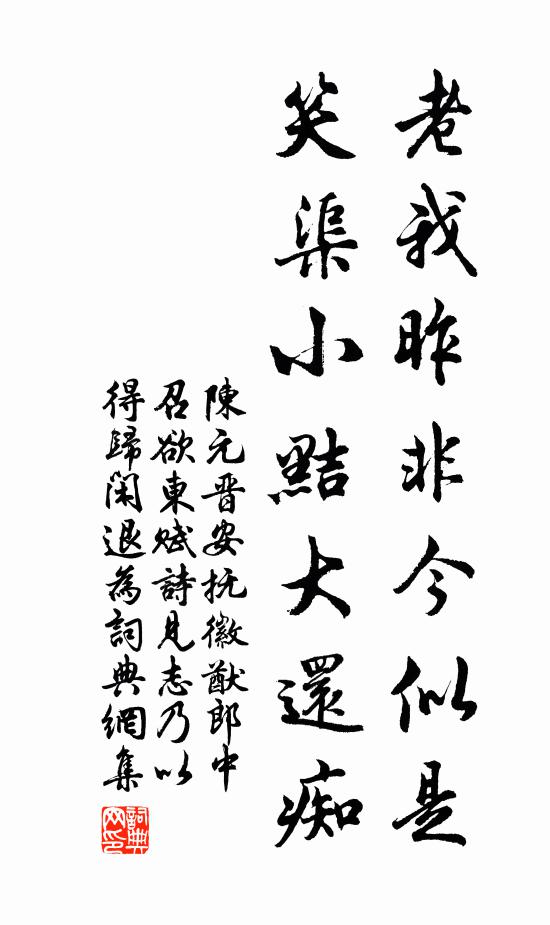 老我昨非今似是
笑渠小黠大還痴
陳元晋安抚徽猷郎中
召欲東賦詩見志乃以
得歸閑退為詞典網集
詞典
网印